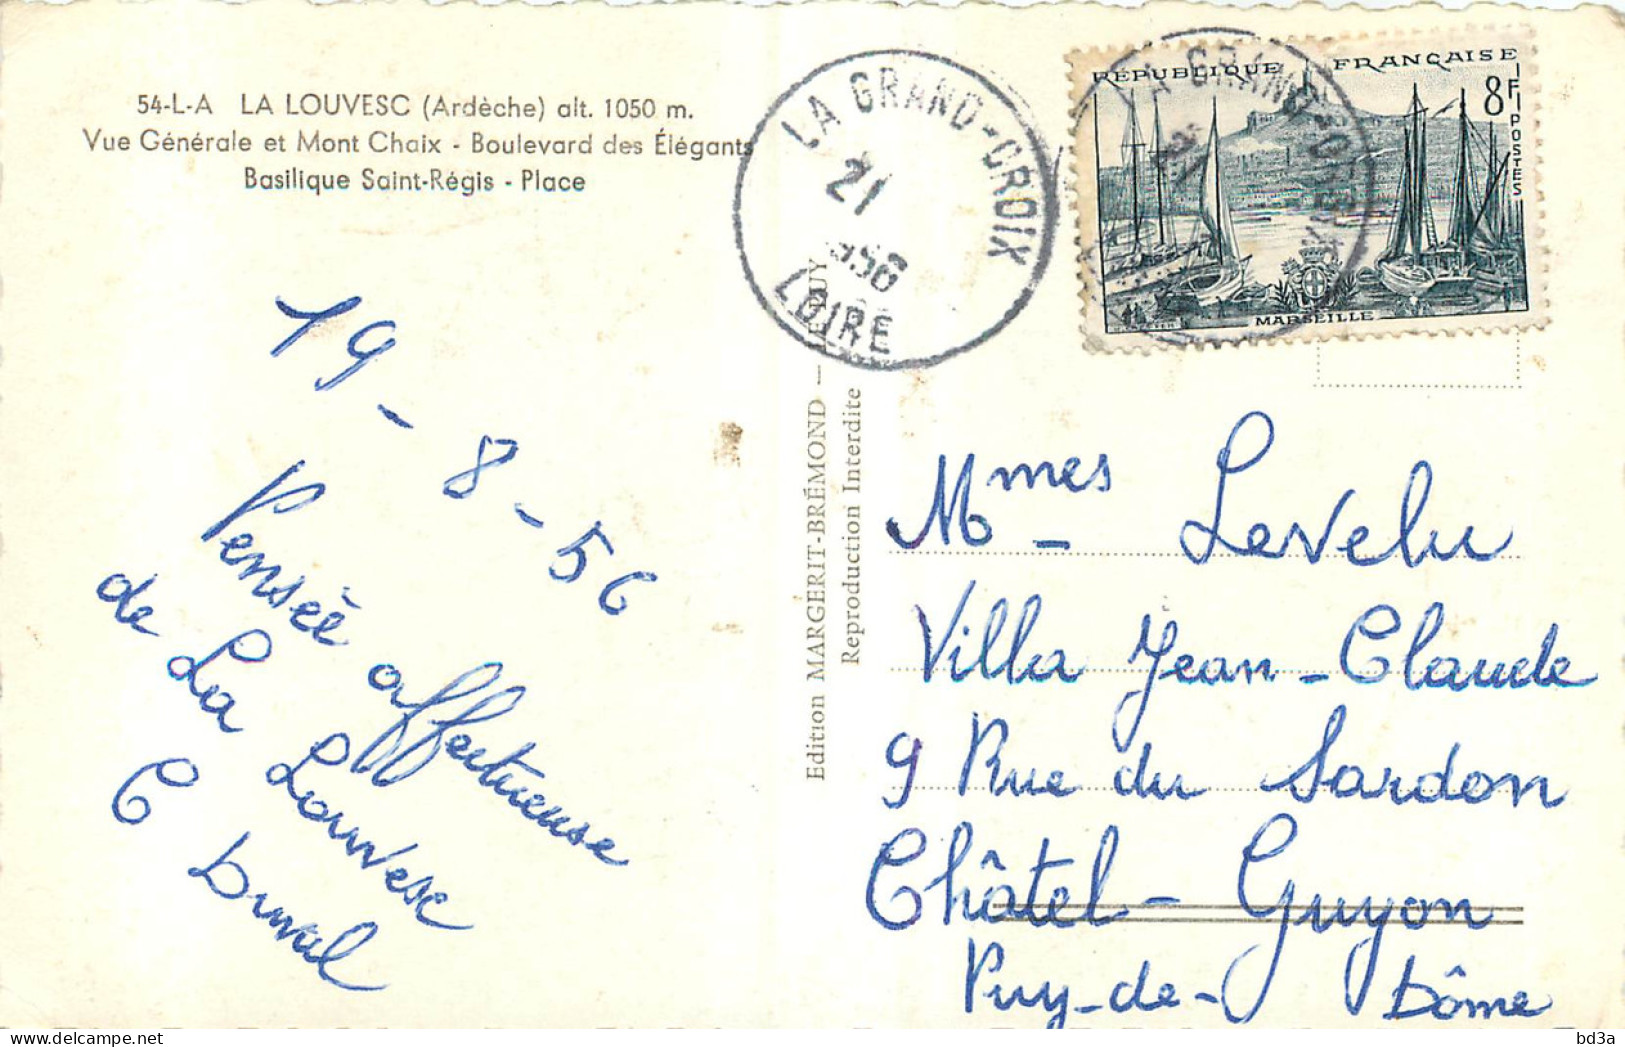 54-L-A LA LOUVESC (Ardèche) alt. 1050 m.
Vue Générale et Mont Chaix - Boulevard des Élégants
Basilique Saint-Régis - Place
LA GRAND-CROIX
21
1956
LOIRE
RÉPUBLIQUE FRANÇAISE
8F
POSTES
MARSEILLE
LA GRAND-CROIX
19-8-56
Pensée affectueuse
de La Louvesc
C Duval
Edition MARGERIT-BRÉMOND — LE PUY
Reproduction Interdite
Mmes Levelu
Villa Jean-Claude
9 Rue du Sardon
Châtel-Guyon
Puy-de-Dôme
bd3a